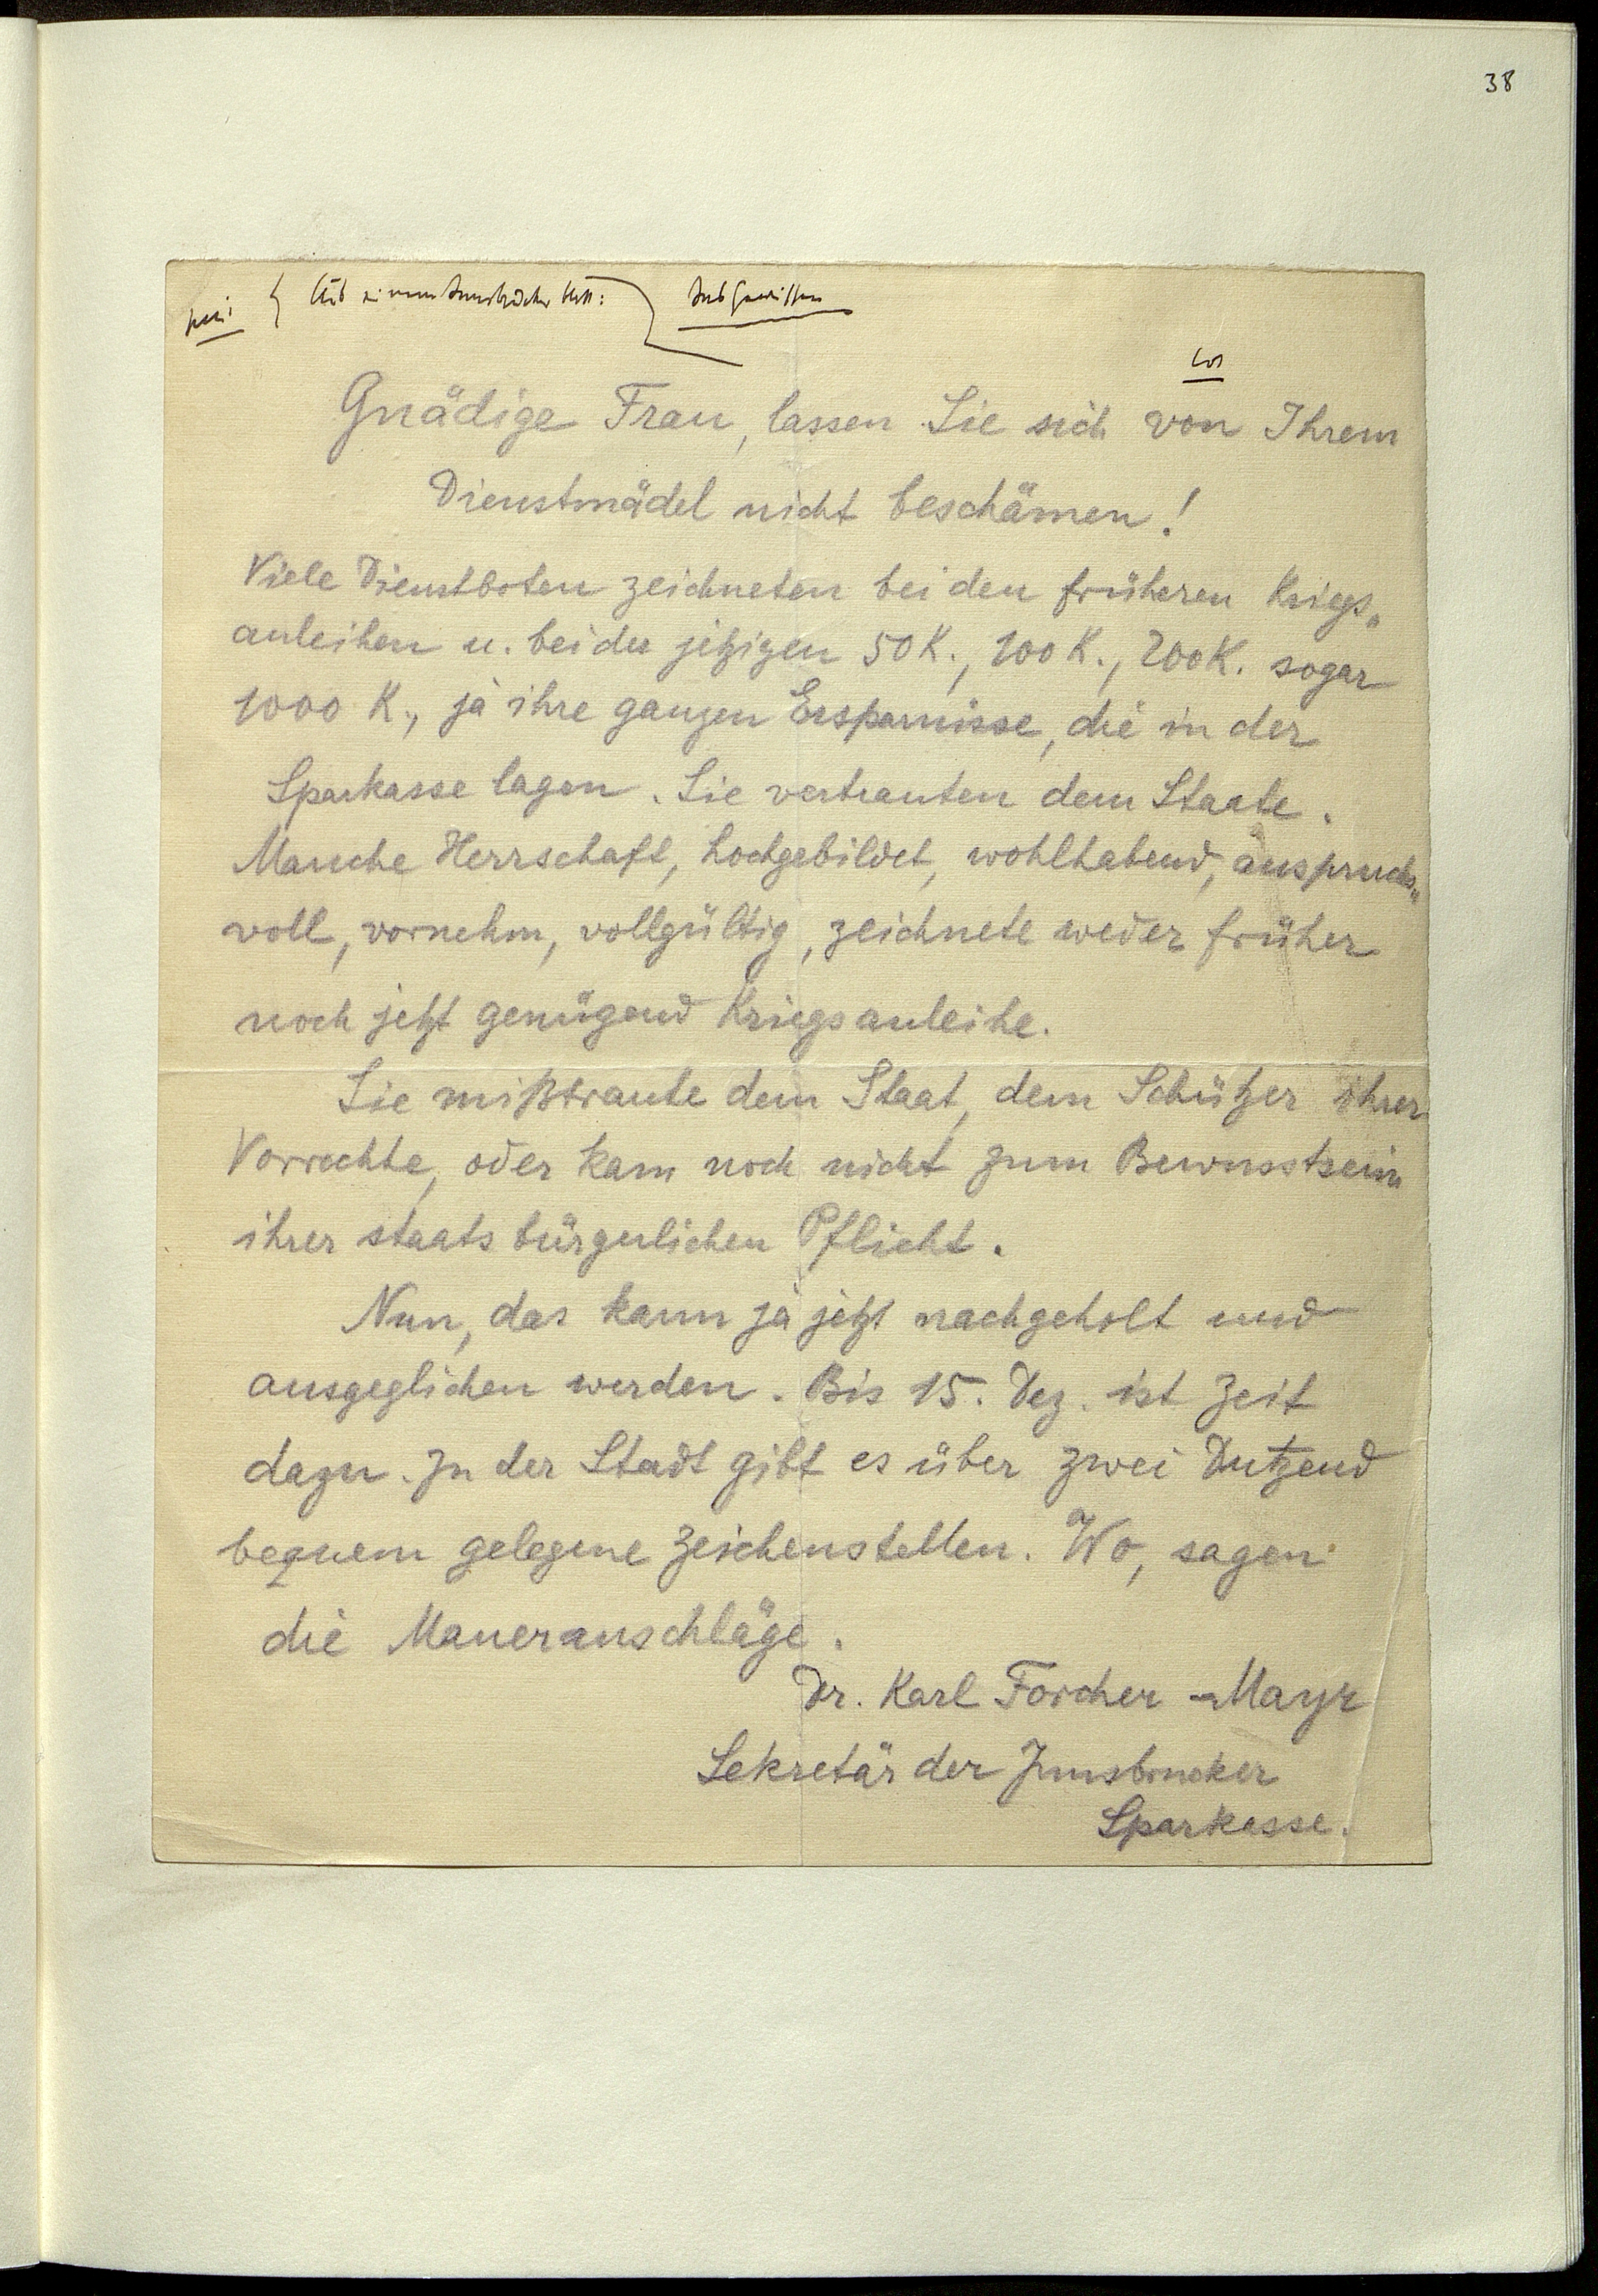 38
Aus einem Innsbrucker Blatt: Das Gewissen
Gnädige Frau, lassen Sie sich von Ihrem
Dienstmädel nicht beschämen!
Viele Dienstboten zeichneten bei den früheren Kriegs„
anleihen u. bei der jetzigen 50 K., 100 K., 200 K. sogar
1000 K., ja ihre ganzen Ersparnisse, die in der
Sparkasse lagen. Sie vertrauten dem Staate.
Manche Herrschaft, hochgebildet, wohlhabend, anspruchs„
voll, vornehm, vollgültig, zeichnete weder früher
noch jetzt genügend Kriegsanleihe.
Sie mißtraute dem Staat, dem Schützer ihrer
Vorrechte, oder kam noch nicht zum Bewusstsein
ihrer staatsbürgerlichen Pflicht.
Nun, das kann ja jetzt nachgeholt und
ausgeglichen werden. Bis 15. Dez. ist Zeit
dazu. In der Stadt gibt es über zwei Dutzend
bequem gelegene Zeichenstellen. Wo, sagen
die Maueranschläge.
Dr. Karl Forcher-Mayr
Sekretär der Innsbrucker
Sparkasse.